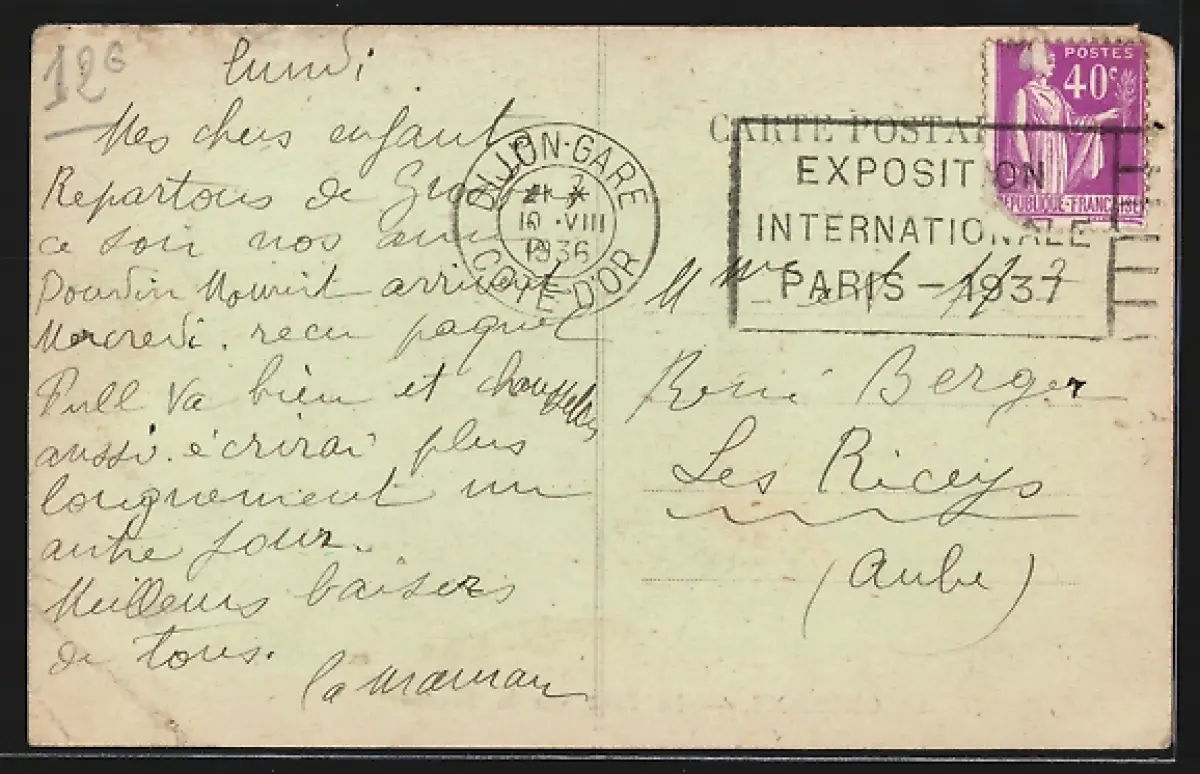 12€
lundi
Mes chers enfants
Repartons de
ce soir nos amis
arrivent
Mercredi. reçu paquet
Pull va bien et
aussi. écrirai plus
longuement un
autre jour.
Meilleurs baisers
de tous.
la maman
DIJON-GARE
10 · VIII
1936
COTE-D'OR
CARTE POSTALE
EXPOSITION
INTERNATIONALE
PARIS - 1937
POSTES
40c
REPUBLIQUE-FRANCAISE
René Berger
Les Riceys
(Aube)